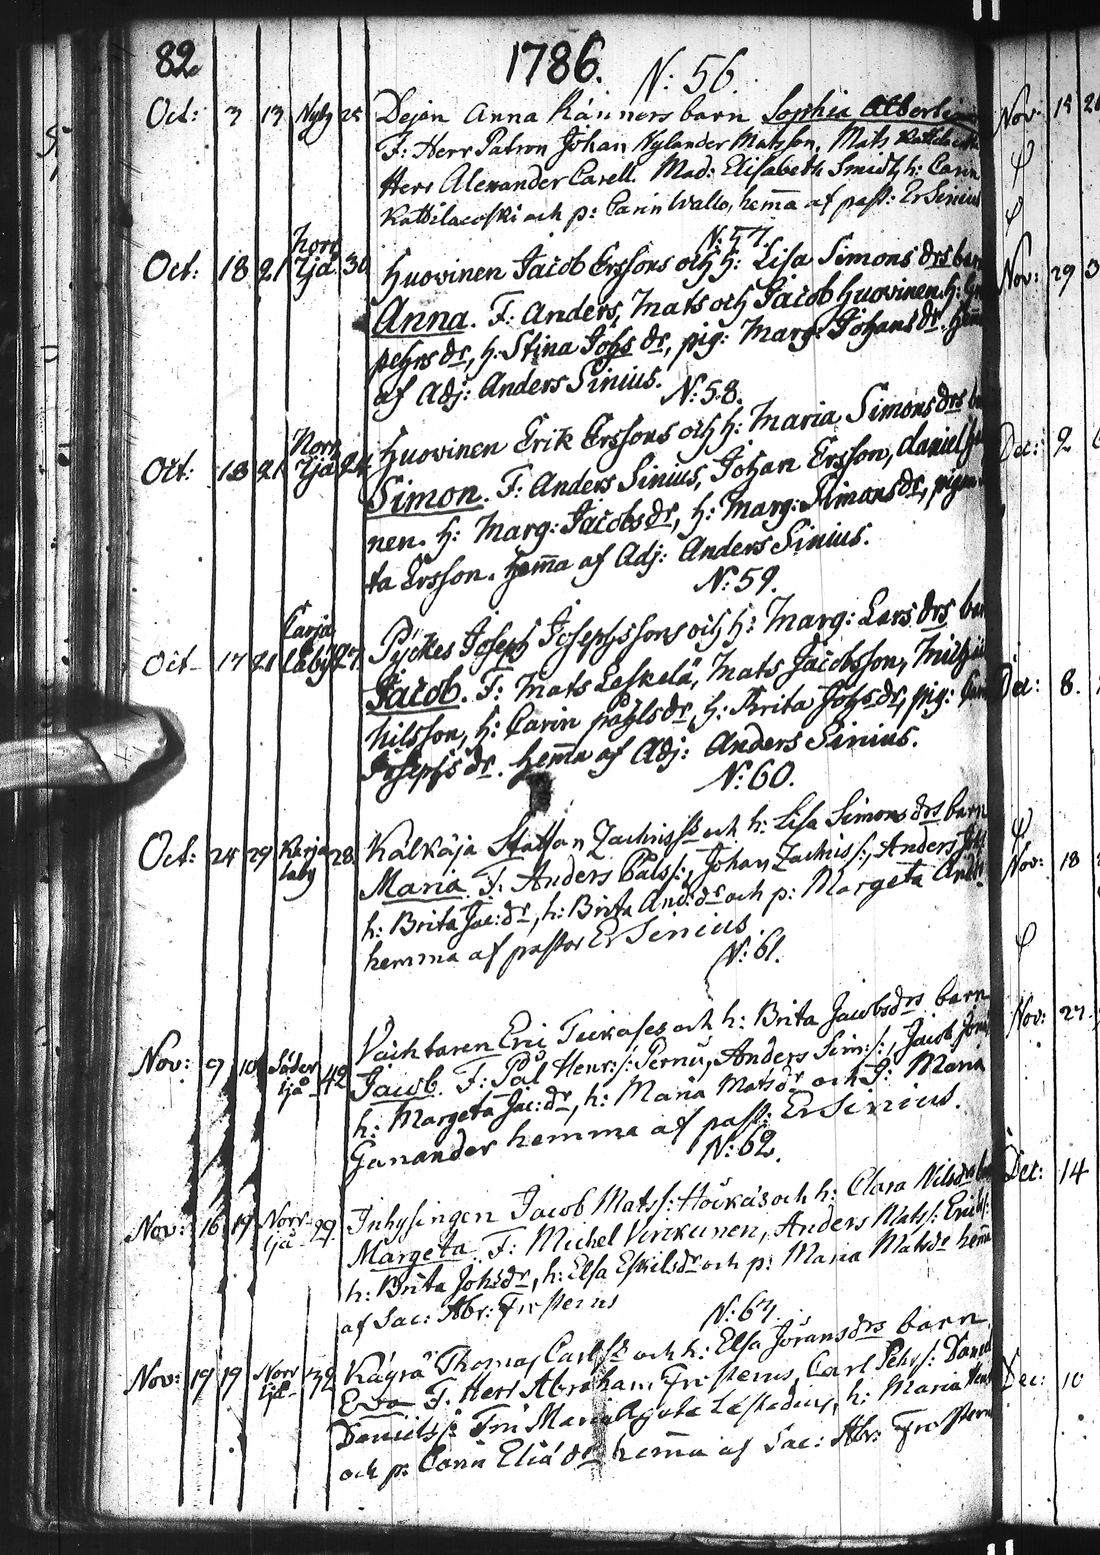 82.
1786.
N: 56.
Oct: 3 13 Nyby 25 Dejan Anna Känners barn Sophia Albertina
F: Herr Patron Johan Nylander Matsson, Mats
Herr Alexander Carell. Mad: Elisabeth Smidt, h: Carin
Kattilacoski och p: Carin Wallo, hem̄a af past: Er Sinius
N: 57.
Oct: 18 21 Norr Ijå 30 Huovinen Jacob Erssons och h: Lisa Simons drs barn
Anna. F: Anders, Mats och Jacob Huovinen, h:
pehrs dr, h: Stina Johs dr, pig: Marg: Johans dr. hem̄a
af Adj: Anders Sinius.
N: 58.
Oct: 18 21 Norr Ijå 24 Huovinen Erik Erssons och h: Maria Simons drs
Simon. F: Anders Sinius, Johan Ersson, daniel
nen. h: Marg: Jacobs dr, h: Marg: Simons dr, pigan
ta Ersson. hem̄a af Adj: Anders Sinius.
N: 59.
Oct 17 21 Carja laby 27. Pyökes Joseph Josephssons och h: Marg: Lars drs barn
Jacob. F: Mats Leskelä, Mats Jacobsson,
Nilsson, h: Carin påhls dr, h: Brita Johs dr, pig:
Josephs dr. hem̄a af Adj: Anders Sinius.
N: 60.
Oct: 24 29 Karja laby 28. Kalkaja Staffan Zachriss: och h: Lisa Simons drs barn
Maria. F: Anders Pals s:, Johan Zachris s:, Anders
h: Brita Jac: dr, h: Brita And: dr och p: Margeta And:
hemma af pastor Er Sinius
N: 61.
Nov: 9 10 Söder Ijå 42 Vacktaren Eric Tuckases och h: Brita Jacobsdrs barn
Jacob. F: Pål Henr: s: Pernu, Anders Sim: s:, Jacob
h: Margeta Jac: dr, h: Maria Mats dr och J: Maria
Ganander hemma af past: Er Sinius.
N: 62.
Nov: 16 19 Norr Ijå 29. Inhysingen Jacob Mats s: Höckäs och h: Clara Nilsdrs
Margeta. F: Michel Virckunen, Anders Mats s:
h: Brita Johsdr, h: Elsa Eskilsdr och p: Maria Matsdr hem̄a
af Sac: Abr: Frosterus
N: 63.
Nov: 19 19 Norr Ijå 32 Kägrä Thomas Carls s: och h: Elsa Jörans drs barn
Eva F. Herr Abraham Frosterus, Carl Pehrs s: Daniel
Daniels s: Fru Maria Agata Læstadius, h: Maria
och p: Carin Eliä dr hem̄a af Sac: Abr: Frosterus
Nov: 15
Nov: 29
Dec: 2
Dec: 8.
Nov: 18
Nov: 27.
Dec: 14
Dec: 10